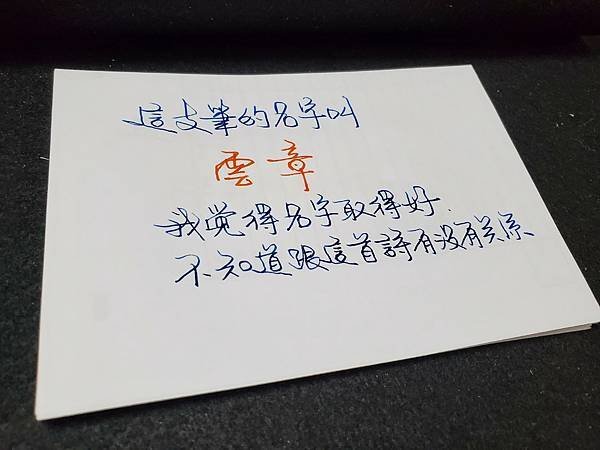 這支筆的名字叫
雲章
我觉得名字取得好.
不知道跟這首詩有沒有关係